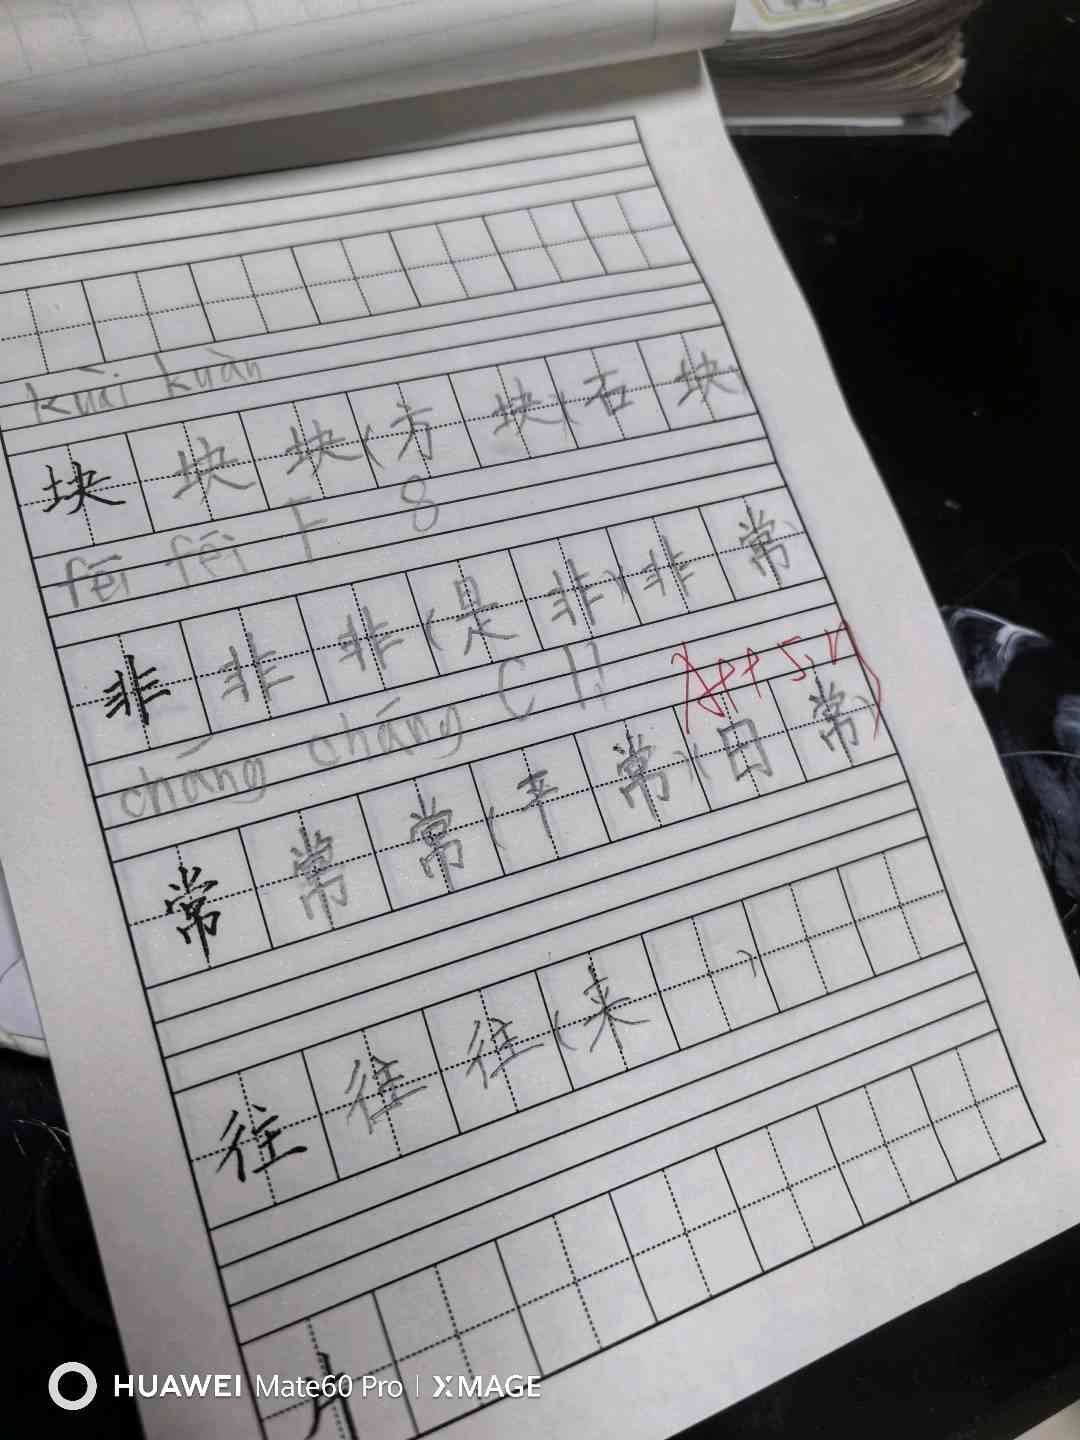 kuài kuàn
块 块 块(方 块)(石 块)
fēi fēi 丨 8
非 非 非(是 非)(非 常)
cháng cháng C 11
常 常 常(平 常)(日 常)
往 往 往(来 )
HUAWEI Mate60 Pro | XMAGE